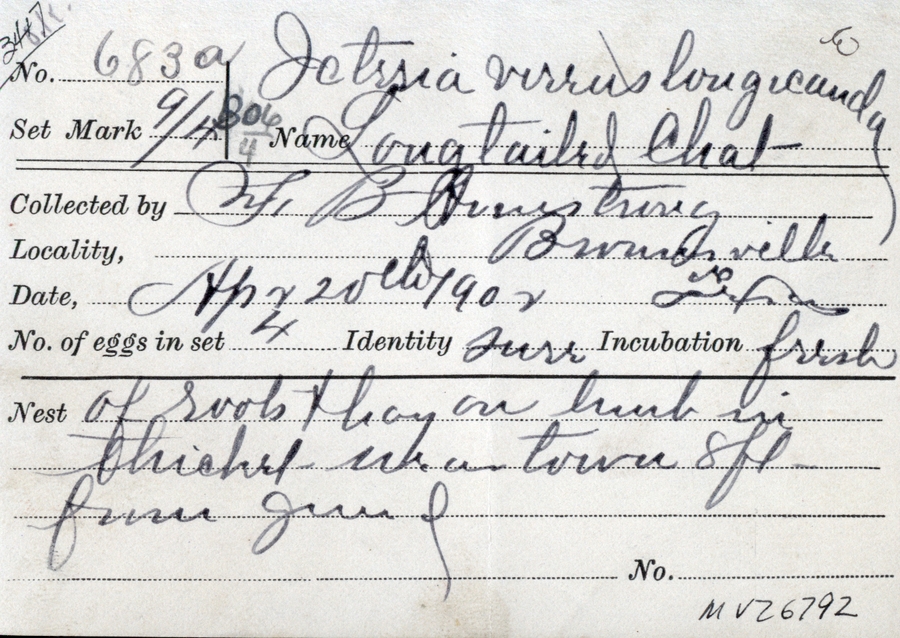 3447
No. 683a Icteria virens longicauda
Set Mark 9/4 806/4 Name Longtailed Chat
Collected by F. B. Armstrong
Locality, Brownsville
Date, Apr 20th 1902 Texas
No. of eggs in set 4 Identity sure Incubation fresh
Nest of roots & hay on limb in
thicket near town 8ft
from ground
No.
MVZ6792